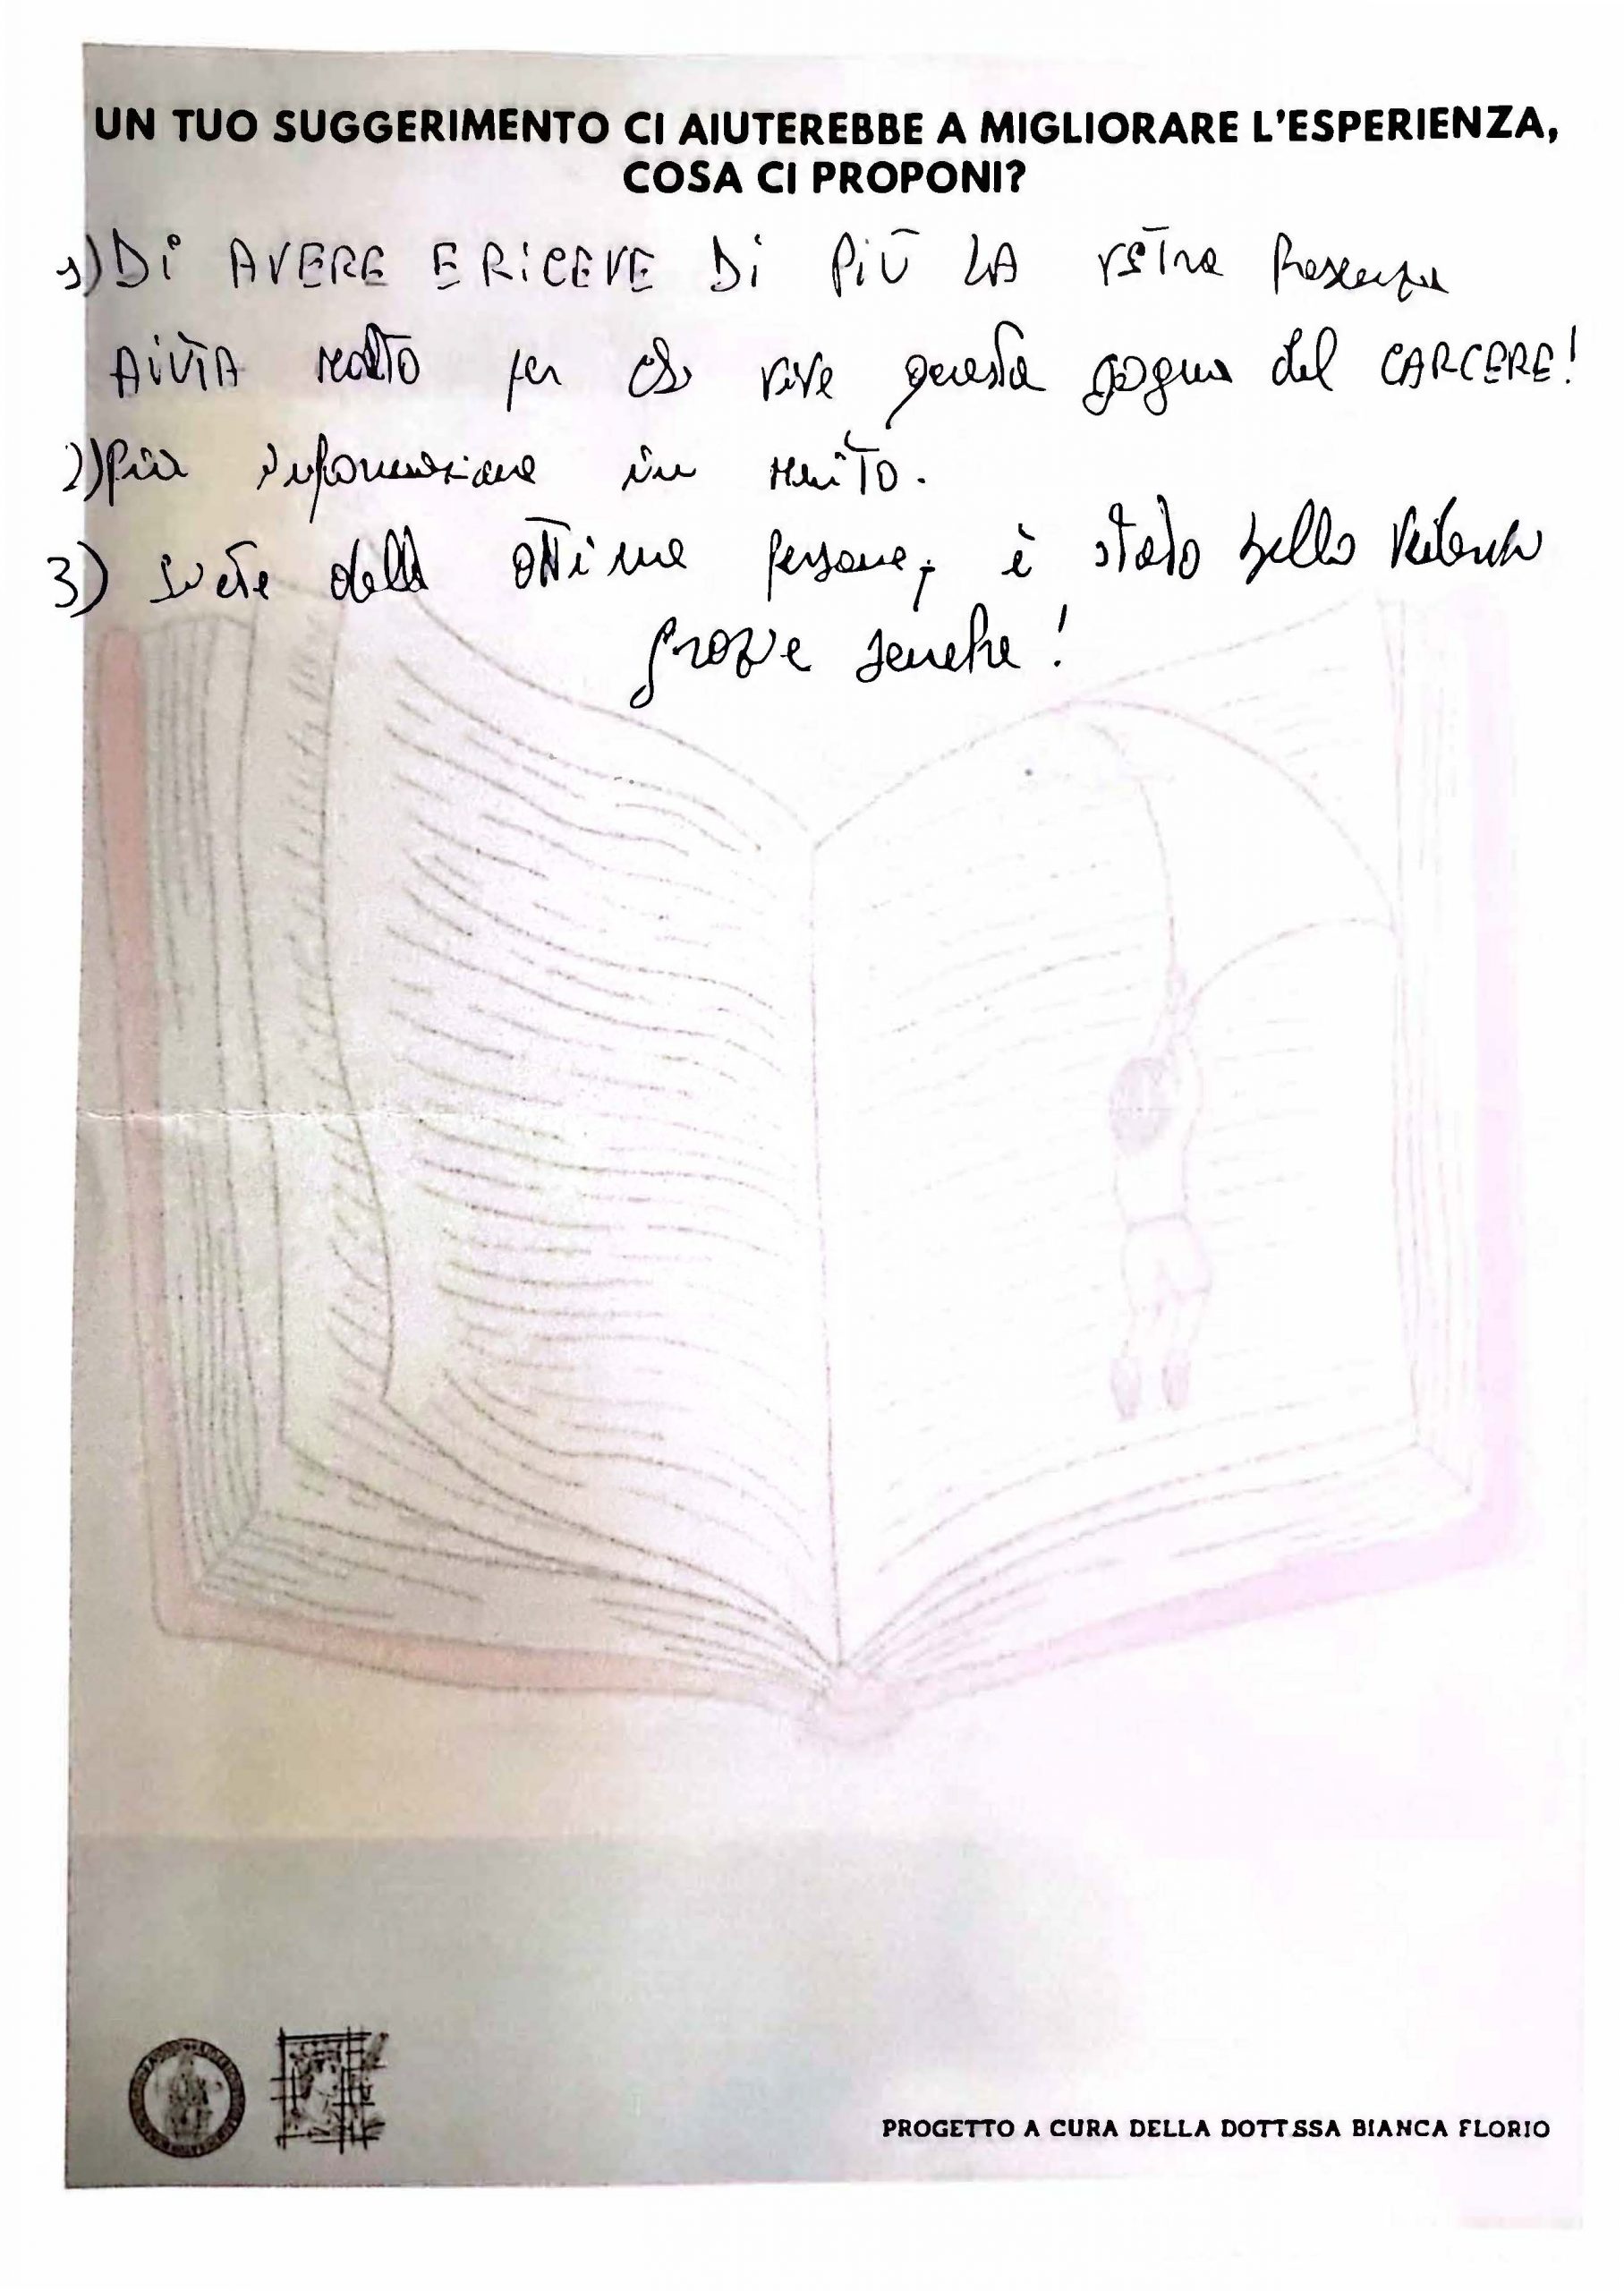 UN TUO SUGGERIMENTO CI AIUTEREBBE A MIGLIORARE L'ESPERIENZA,
COSA CI PROPONI?
1) Di AVERE E RiCEVE Di PiÙ LA vstra Presenza
AiUTA molto per chi vive questa gogna del CARCERE!
2) Più informazione in merito.
3) siete delle ottime persone, è stato bello
grazie !
PROGETTO A CURA DELLA DOTT.SSA BIANCA FLORIO